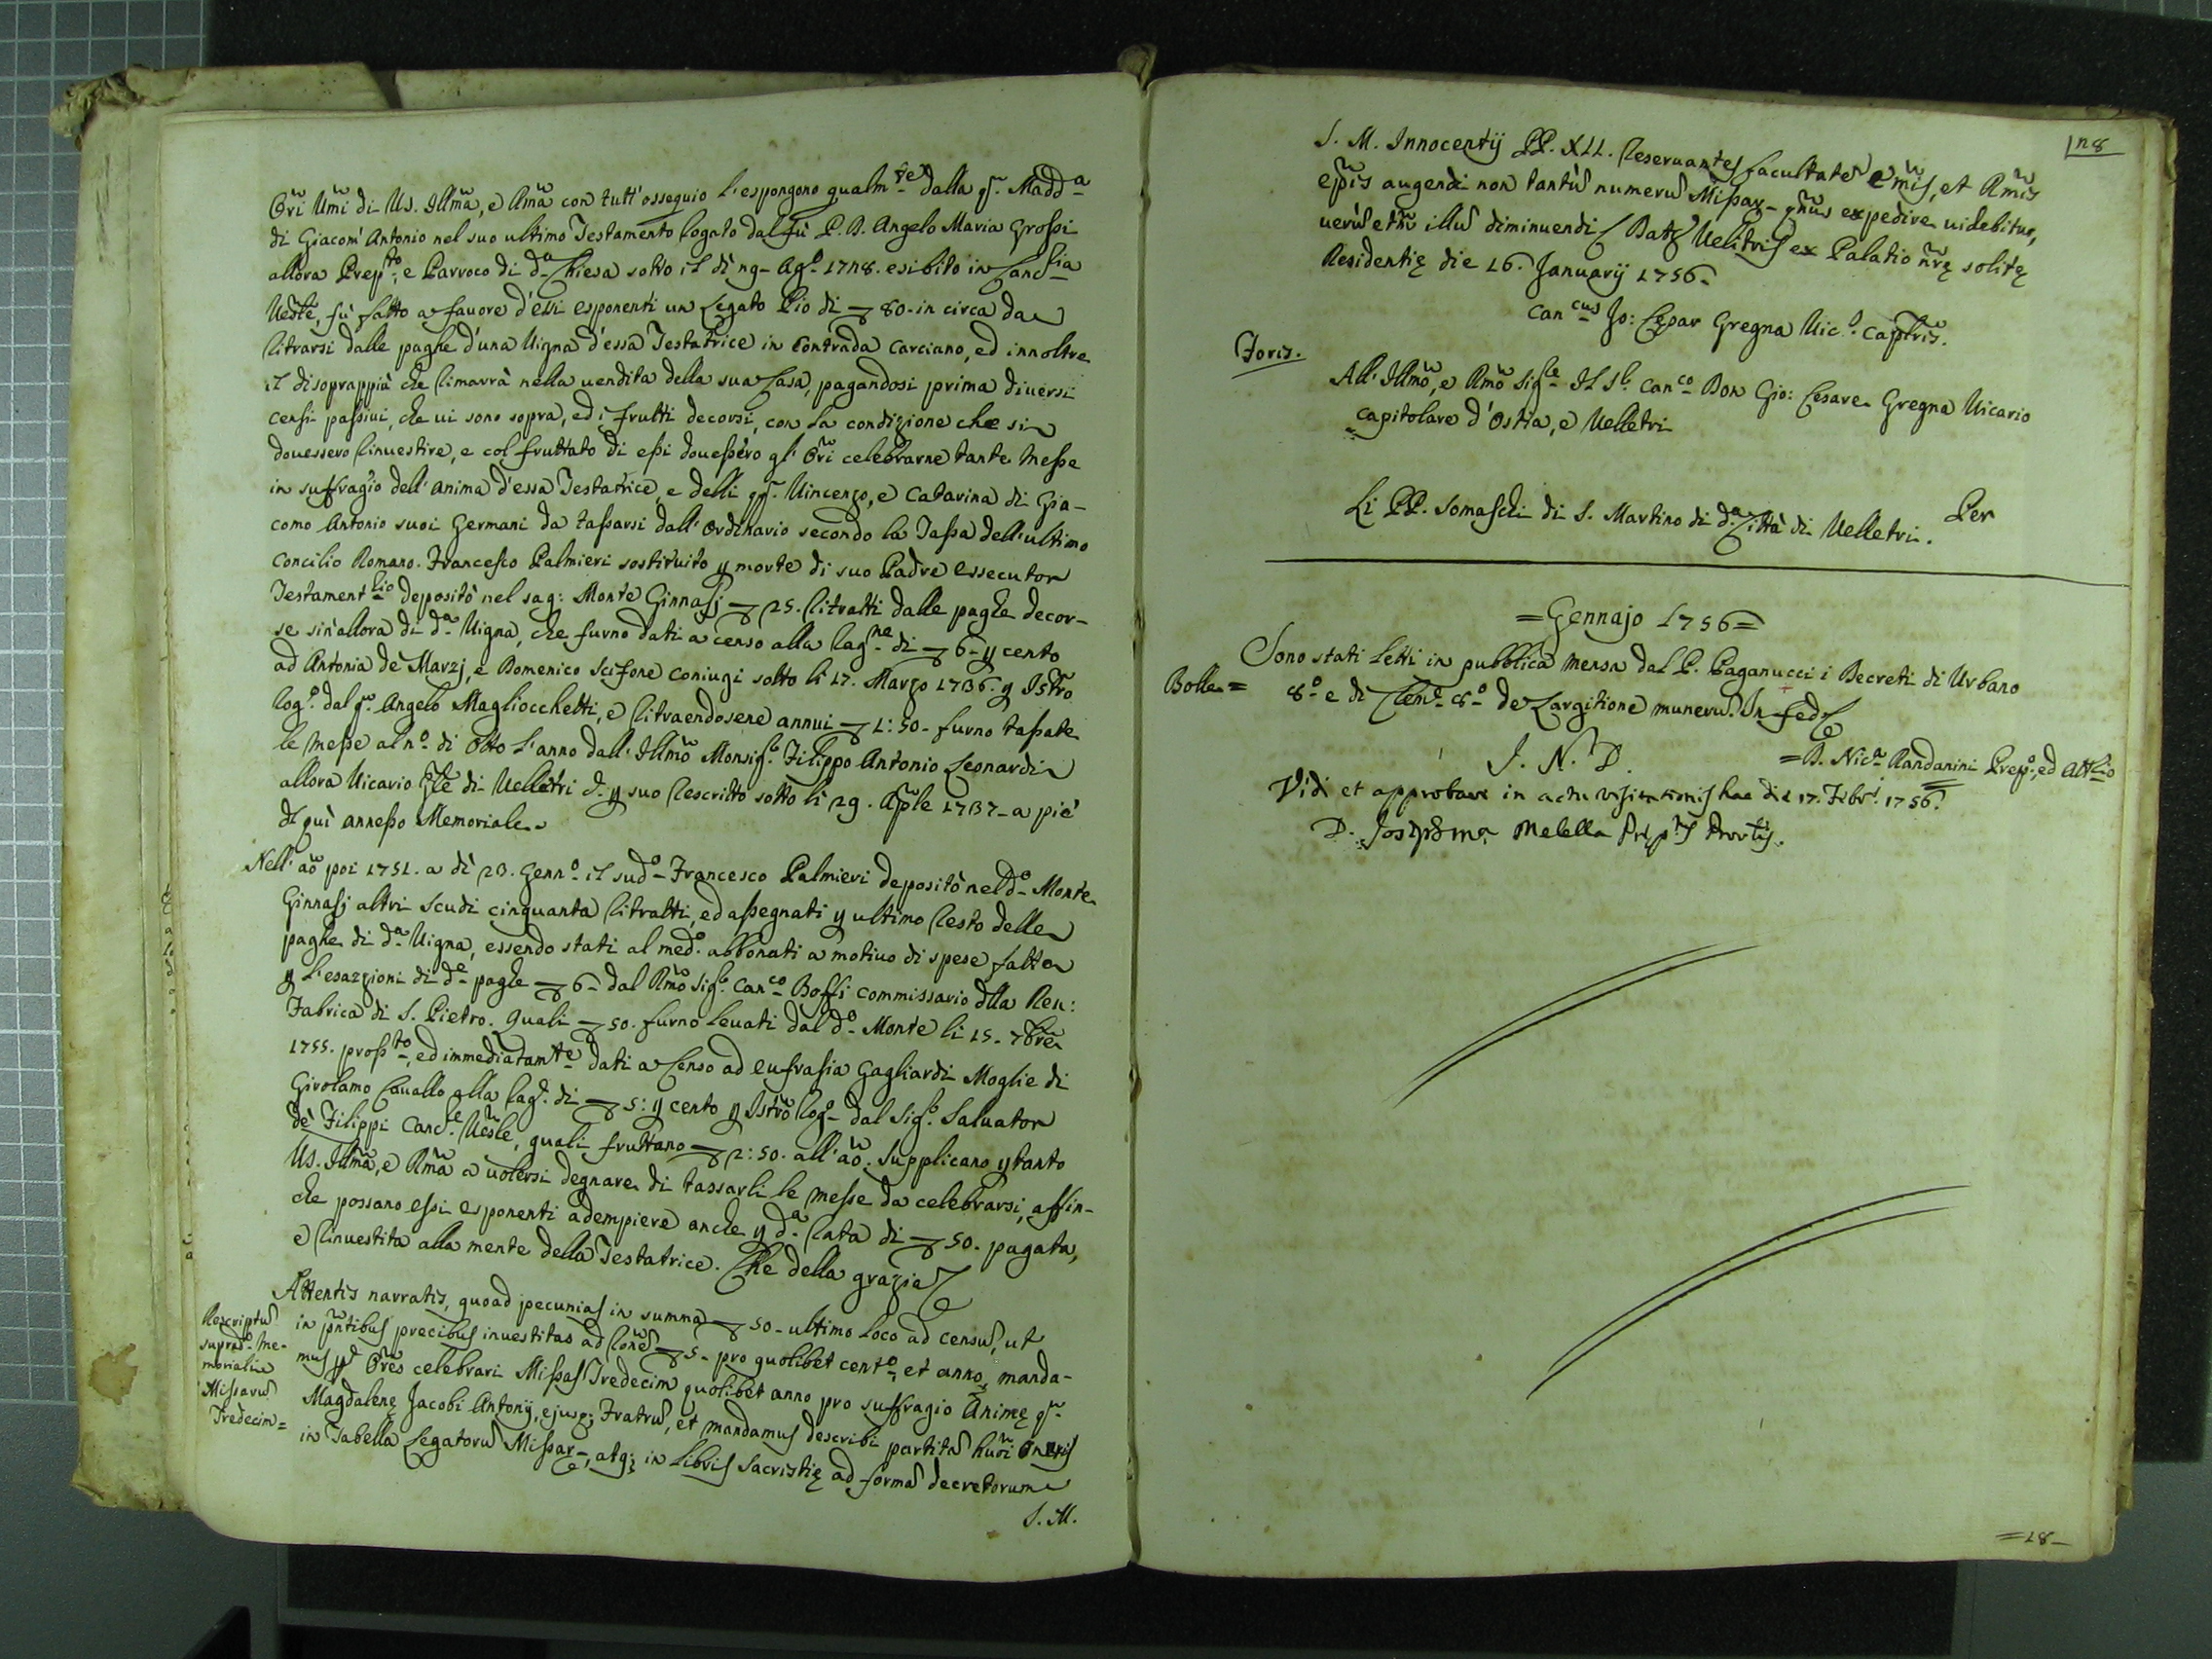 Orĩ Umĩ di US. Illm̃a, e Rm̃a con tutt'ossequio l'espongono qualmte dalla qm. Madda
di Giacom'Antonio nel suo ultimo Testamento rogato dal fù P. D. Angelo Maria Grossi
allora Prepto, e Parroco di da Chiesa sotto il dì 29 Ago 1728. esibito in Canclia
Uesle, fù fatto a fauore d'essi esponenti un Legato Pio di 80 in circa da
ritrarsi dalle paghe d'una Uigna d'essa Testatrice in Contrada Carciano, ed innoltre
il disoprappiù che rimarrà nella uendita della sua Casa, pagandosi prima diuersi
censi passiui, che ui sono sopra, ed i frutti decorsi, con la condizione che si
douessero rinuestire, e col fruttato di essi douessero gl'Orĩ celebrarne tante Messe
in suffragio dell'anima d'essa Testatrice, e delli qm. Uincenzo, e Catarina di Gia-
como Antonio suoi Germani da tassarsi dall'Ordinario secondo la Tassa dell'ultimo
Concilio Romano. Francesco Palmieri sostituito p morte di suo Padre essecutor
Testamentrio depositò nel sag: Monte Ginnasj 25. ritratti dalle paghe decor-
se sin'allora di da Uigna, che furno dati a censo alla ragne di 6 p cento
ad Antonia de Marzj, e Domenico Scifone coniugi sotto li 17. Marzo 1736. p Istro
rogo. dal qm. Angelo Magliocchetti, e ritraendosene annui 1:50 furno tassate
le Messe al no di Otto l'anno dall'Illmo Monsigr. Filippo Antonio Leonardi
allora Uicario Gle di Uelletri da p suo Rescritto sotto li 29. Aple 1737 a piè
di qui annesso Memoriale.
Nell'ao poi 1751. a dì 23. Genno il sudo Francesco Palmieri depositò nel do Monte
Ginnasj altri scudi cinquanta ritratti, ed assegnati p ultimo resto delle
paghe di da Uigna, essendo stati al medo. abbonati a motiuo di spese fatte
p l'esazzioni di de paghe 6 dal Rmo Sigr. Canco Bossi Commissario dlla Reu:
Fabrica di S. Pietro. Quali 50. furno leuati dal do Monte li 15. 7bre
1755. prossto, ed immediatamte dati a Censo ad Eufrasia Gagliardi Moglie di
Girolamo Cauallo alla rage. di 5: p cento p Istro rogo dal Sigr. Saluator
de Filippi Cancre Uesle, quali fruttano 2:50. all'ao. Supplicano p tanto
US. Illma, e Rma a uolersi degnare di tassarli le messe da celebrarsi, affin-
che possano essi esponenti adempiere anche p da rata di 50. pagata,
e rinuestita alla mente della Testatrice. Che della grazia
Rescriptu
suprado. Me-
morialis
Missaru
Tredecim=
Attentis narratis, quoad pecunias in summa 50 ultimo loco ad censu, ut
in pñtibus precibus inuestitas ad rone 5 pro quolibet cento, et anno, manda-
mus p Ores celebrari Missas Tredecim quolibet anno pro suffragio Animę qm.
Magdalenę Jacobi Antonij, ejusq; Fratru, et mandamus describi partita huoi Oneris
in Tabella Legatoru Missar, atq; in Libris Sacristię ad forma decretorum
S. M.
128
S. M. Innocentij PP. XII. Reseruantes facultate Emis, et Rmis
Epis augendi non tantu numeru Missar qñus expedire uidebitur,
ueru etm illu diminuendi Dat Uelitris ex Palatio nrę solitę
Residentię die 16. Januarij 1756
Cancus Jo: Cęsar Gregna Uic.s Caplris.
Foris.
All'Illmo, e Rmo Sigre Il Sr. Canco Don Gio: Cesare Gregna Uicario
Capitolare d'Ostia, e Uelletri
Per
Li PP. Somaschi di S. Martino di da Città di Uelletri.
=Gennajo 1756=
Bolle=
Sono stati letti in pubblica mensa dal P. Paganucci i Decreti di Urbano
8o e di Cleme 8o de Largitione muneru. In fede
=D. Nica Randanini Prepo, ed Attrio
I. N. D.
Vidi et approbavi in actu visitationis hac die 17. Febri. 1756.
D. Joseph Ma Melella Prępts Provlis.
=18